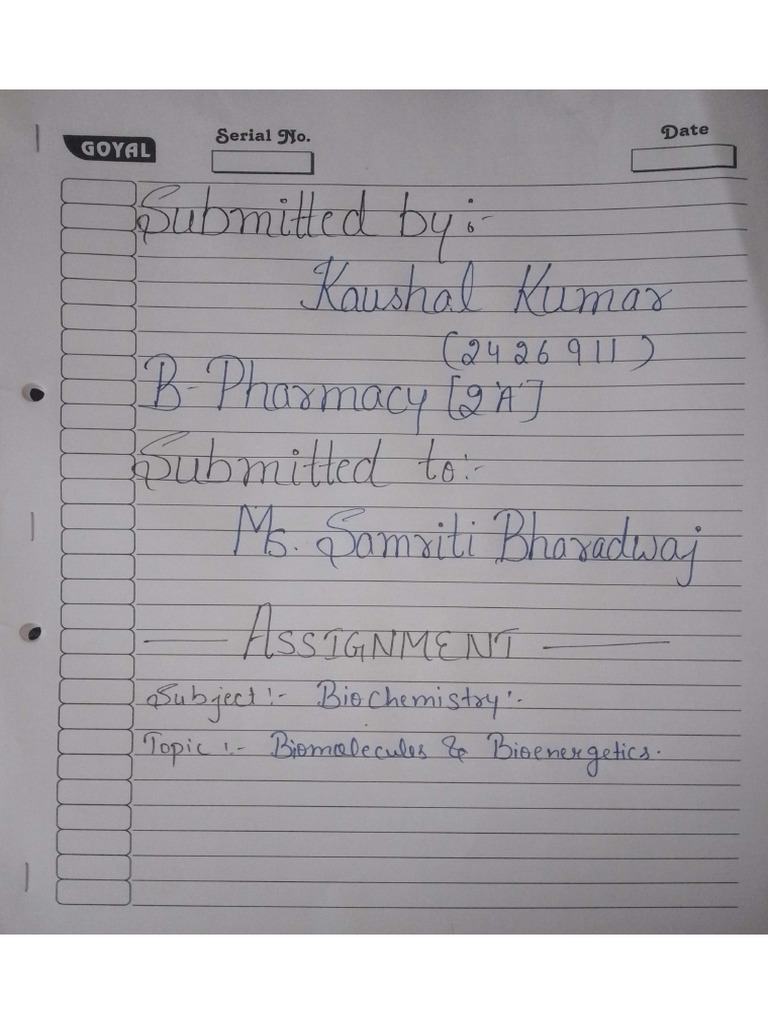 GOYAL
Serial No.
Date
Submitted by :-
Kaushal Kumar
(2426911)
B-Pharmacy [2'A']
Submitted to :-
Ms. Samriti Bharadwaj
— ASSIGNMENT —
Subject :- Biochemistry :-
Topic :- Biomolecules & Bioenergetics.